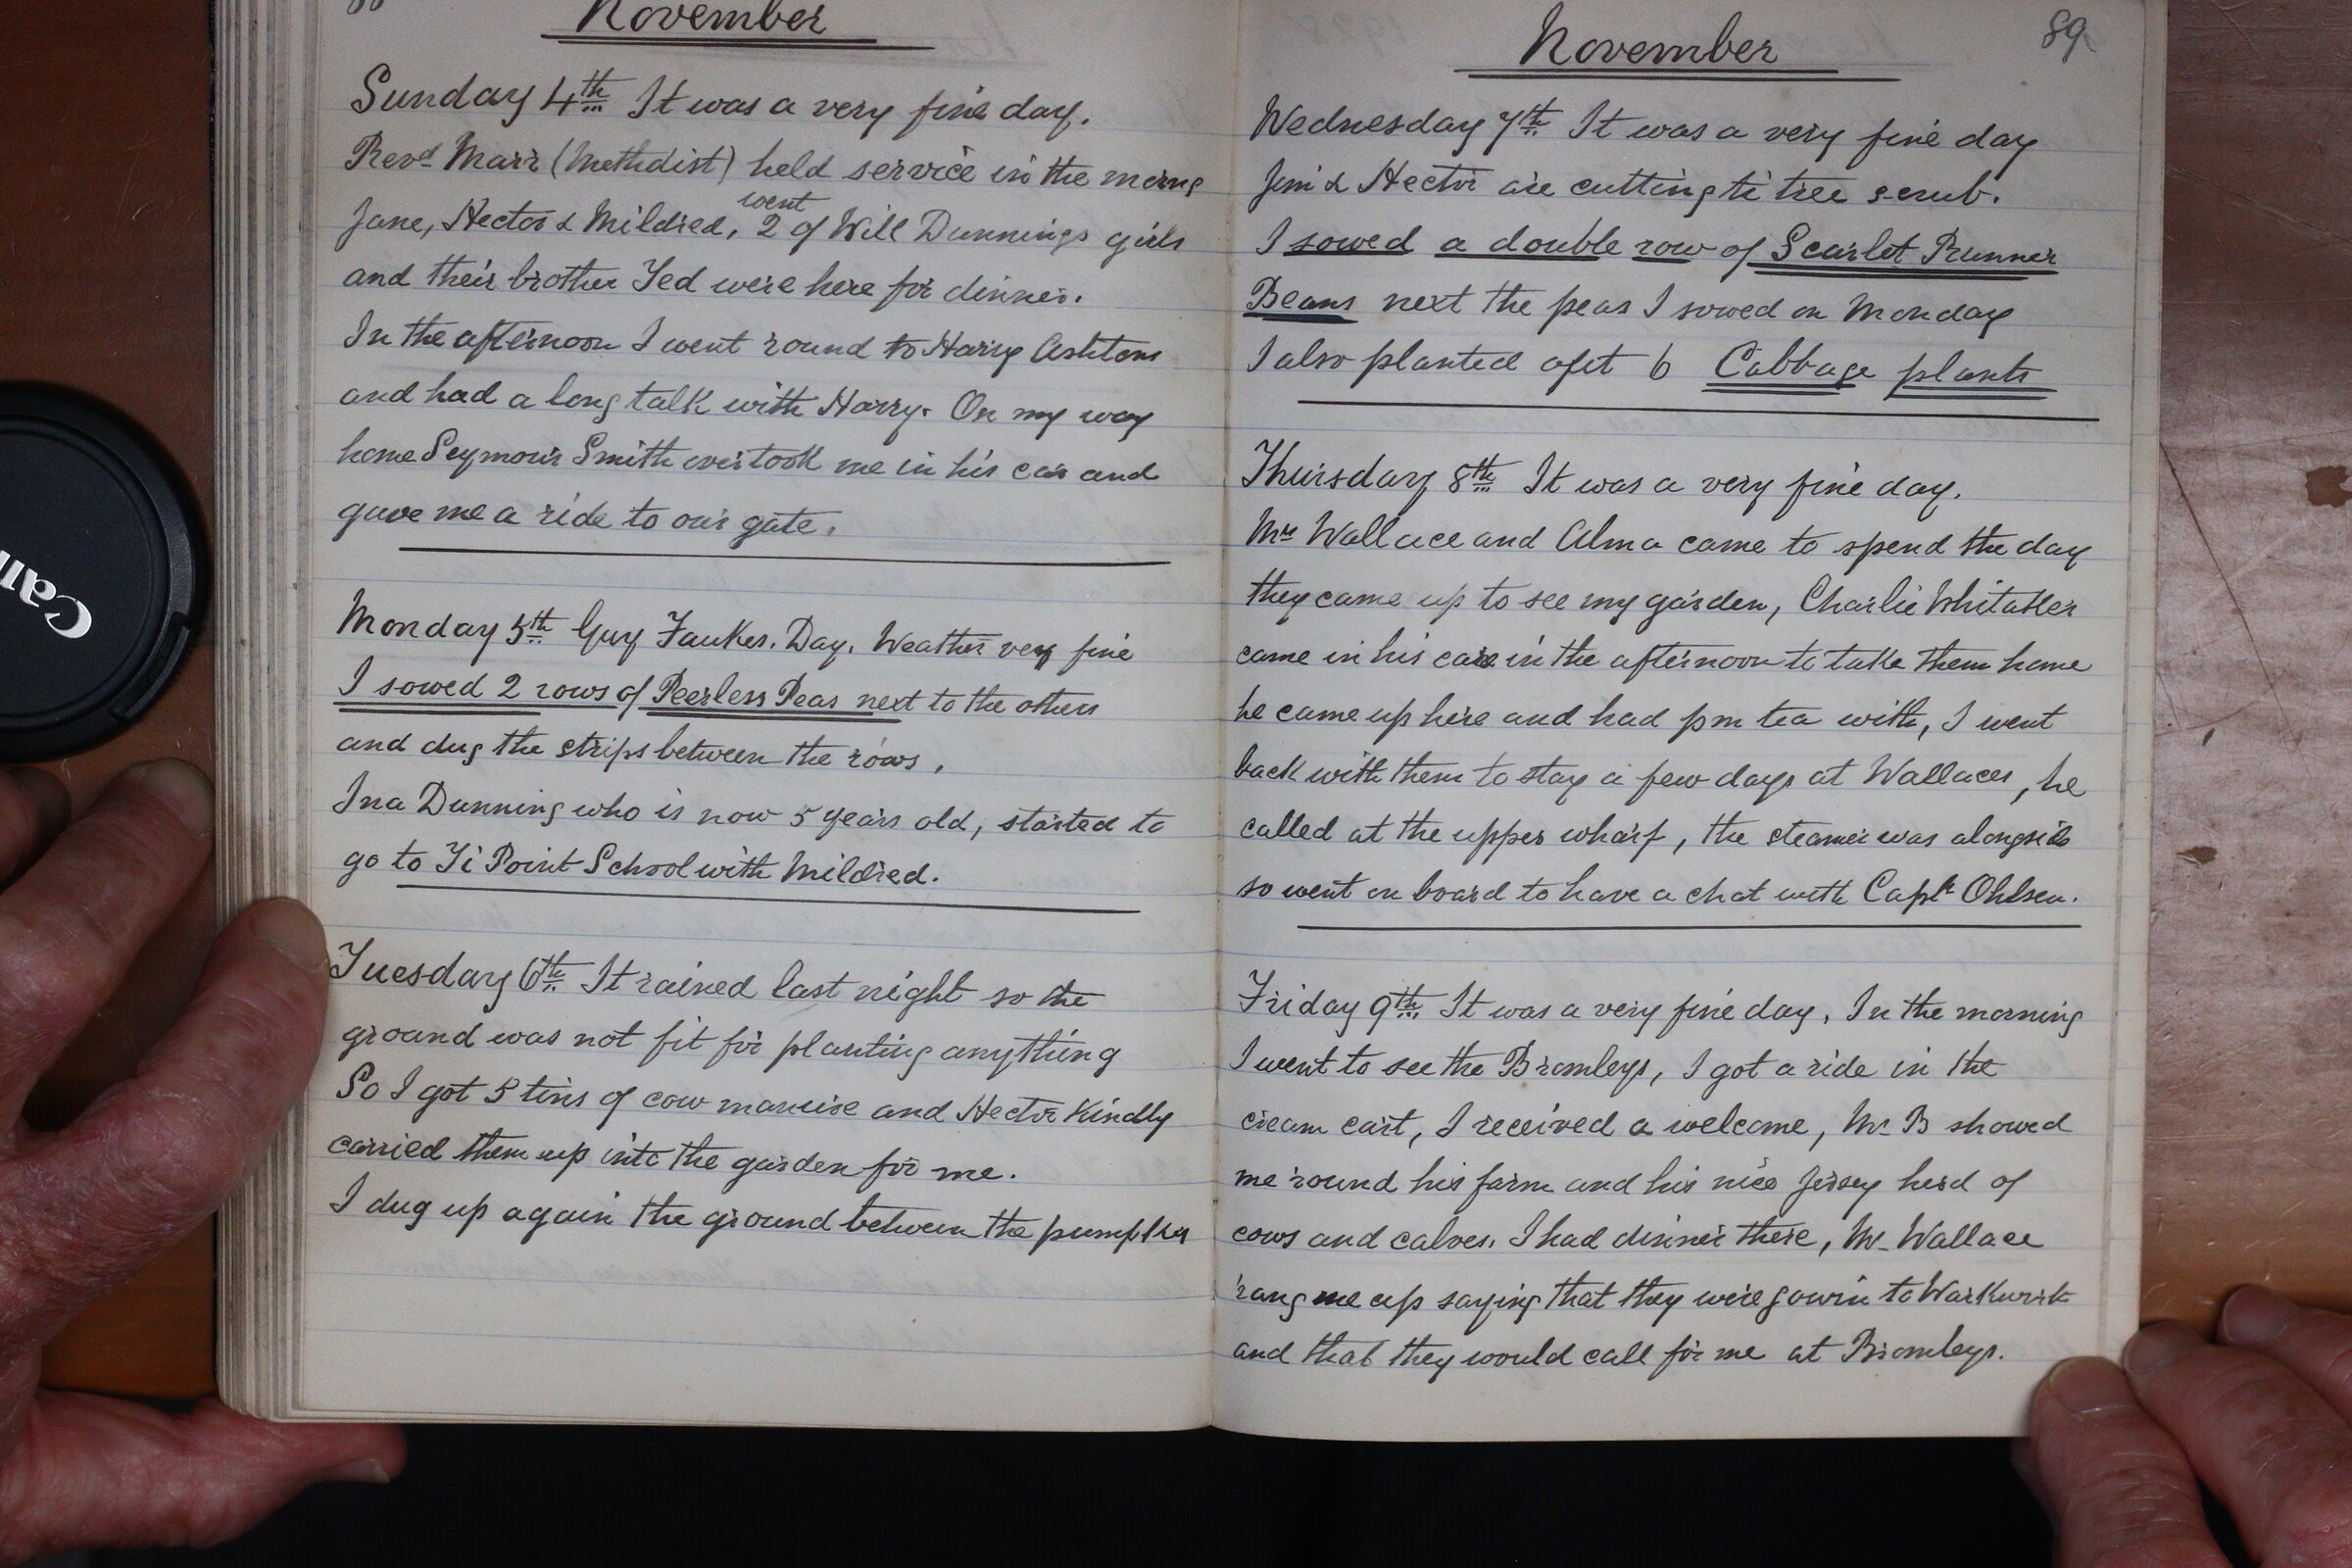 88
November
Sunday 4th It was a very fine day.
Revd Marr (Methdist) held service in the morng
went
Jane, Hector & Mildred, 2 of Will Dunnings girls
and their brother Ted were here for dinner.
In the afternoon I went round to Harry Ashtons
and had a long talk with Harry. On my way
home Seymour Smith overtook me in his car and
gave me a ride to our gate.
Monday 5th Guy Faukes. Day. Weather very fine
I sowed 2 rows of Peerless Peas next to the others
and dug the strips between the rows.
Ina Dunning who is now 5 years old, started to
go to Ti Point School with Mildred.
Tuesday 6th It rained last night so the
ground was not fit for planting anything
So I got 5 tins of cow manure and Hector kindly
carried them up into the garden for me.
I dug up again the ground between the
November
89
Wednesday 7th It was a very fine day
Jim & Hector are cutting ti tree scrub.
I sowed a double row of Scarlet Runner
Beans next the peas I sowed on Monday
I also planted oft 6 Cabbage plants
Thursday 8th It was a very fine day.
Mrs Wallace and Alma came to spend the day
they came up to see my garden, Charlie Whitaker
came in his care in the afternoon to take them home
he came up here and had pm tea with, I went
back with them to stay a few days at Wallaces, he
called at the upper wharf, the steamer was alongside
so went on board to have a chat with Capt Ohlsen.
Friday 9th It was a very fine day. In the morning
I went to see the Bromleys, I got a ride in the
cream cart, I received a welcome, Mr B showed
me round his farm and his nice Jersey herd of
cows and calves. I had dinner there, Mr Wallace
rang me up saying that they were gowin to Warkworth
and that they would call for me at Bromleys.
Can